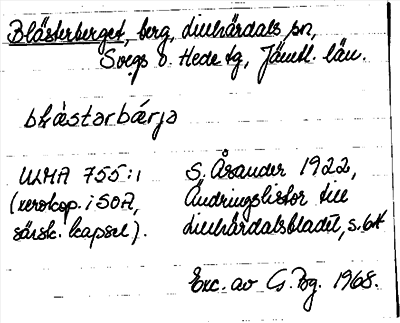 Blästerberget, berg, Linhärdals sn,
Svegs o. Hede tg, Jämtl. län.
blæstərbárjə
ULMA 755:1
(xerokop. i SOA,
särsk. kapsel).
S. Åsander 1922,
Ändringslistor till
Linhärdalsbladet, s. 6
Exc. av G. Bg. 1968.